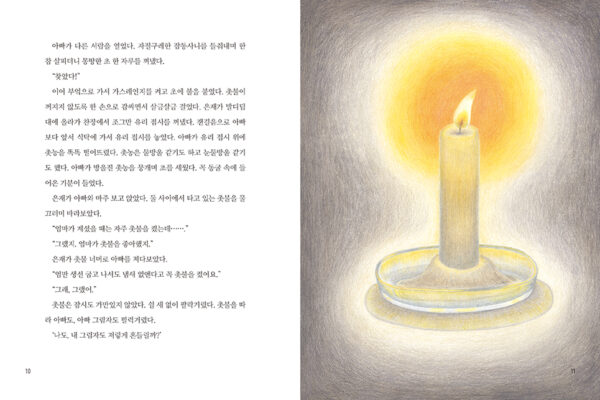 아빠가 다른 서랍을 열었다. 자질구레한 잡동사니를 들춰내며 한
참 살피더니 몽땅한 초 한 자루를 꺼냈다.
"찾았다!"
이어 부엌으로 가서 가스레인지를 켜고 초에 불을 붙였다. 촛불이
꺼지지 않도록 한 손으로 감싸면서 살금살금 걸었다. 은재가 발디딤
대에 올라가 찬장에서 조그만 유리 접시를 꺼냈다. 잰걸음으로 아빠
보다 앞서 식탁에 가서 유리 접시를 놓았다. 아빠가 유리 접시 위에
촛농을 똑똑 떨어뜨렸다. 촛농은 물방울 같기도 하고 눈물방울 같기
도 했다. 아빠가 방울진 촛농을 뭉개며 초를 세웠다. 꼭 동굴 속에 들
어온 기분이 들었다.
은재가 아빠와 마주 보고 앉았다. 둘 사이에서 타고 있는 촛불을 물
끄러미 바라보았다.
"엄마가 계셨을 때는 자주 촛불을 켰는데……."
"그랬지. 엄마가 촛불을 좋아했지."
은재가 촛불 너머로 아빠를 쳐다보았다.
"엄만 생선 굽고 나서도 냄새 없앤다고 꼭 촛불을 켰어요."
"그래, 그랬어."
촛불은 잠시도 가만있지 않았다. 쉴 새 없이 팔락거렸다. 촛불을 따
라 아빠도, 아빠 그림자도 펄럭거렸다.
'나도, 내 그림자도 저렇게 흔들릴까?'
10
11